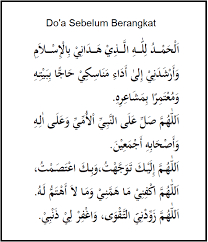 Do'a Sebelum Berangkat
اَلْحَمْدُ لِلّٰهِ الَّذِيْ هَدَانِيْ بِالْإِسْلَامِ
وَأَرْشَدَنِيْ إِلَى أَدَاءِ مَنَاسِكِيْ حَاجًّا بِبَيْتِهِ
وَمُعْتَمِرًا بِمَشَاعِرِهِ.
اَللّٰهُمَّ صَلِّ عَلَى النَّبِيِّ الْأُمِّيِّ وَعَلَى اٰلِهِ
وَأَصْحَابِهِ أَجْمَعِيْنَ.
اَللّٰهُمَّ إِلَيْكَ تَوَجَّهْتُ، وَبِكَ اعْتَصَمْتُ،
اَللّٰهُمَّ اكْفِنِيْ مَا هَمَّنِيْ وَمَا لَا أَهْتَمُّ لَهُ.
اَللّٰهُمَّ زَوِّدْنِيَ التَّقْوَى، وَاغْفِرْ لِيْ ذَنْبِيْ.